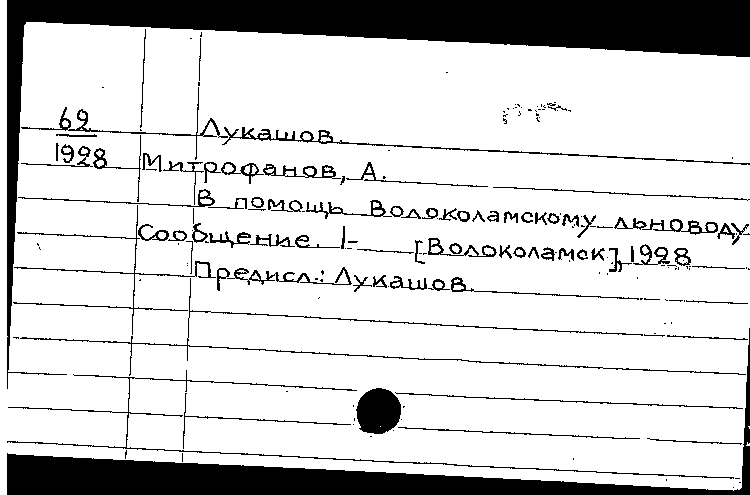 62
1928
Лукашов.
Митрофанов, А.
В помощь Волоколамскому льноводу,
Сообщение. 1-
[Волоколамск], 1928
Предисл.: Лукашов.